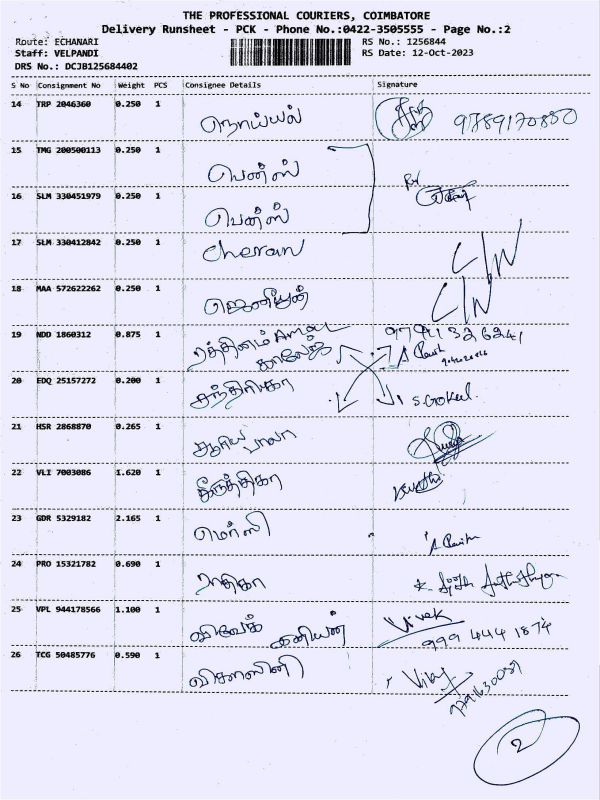 THE PROFESSIONAL COURIERS, COIMBATORE
Delivery Runsheet - PCK - Phone No.:0422-3505555 - Page No.:2
Route: ECHANARI RS No.: 1256844
Staff: VELPANDI RS Date: 12-Oct-2023
DRS No.: DCJB125684402
S No Consignment No Weight PCS Consignee Details Signature
14 TRP 2046360 0.250 1 நொய்யல் 9789170880
15 TMG 200500113 0.250 1 பென்ஸ்
16 SLM 330451979 0.250 1 பென்ஸ்
17 SLM 330412842 0.250 1 Cheran C/N
18 MAA 572622262 0.250 1 ஜெனியூன் C/N
19 NDD 1860312 0.875 1 ரத்தினம் 9791326241
காலேஜ்
20 EDQ 25157272 0.200 1 சந்திரிகா S Gokul.
21 HSR 2868870 0.265 1 சூரிய பாலா
22 VLI 7003086 1.620 1 கீருத்திகா
23 GDR 5329182 2.165 1 மெர்ஸி
24 PRO 15321782 0.690 1 ராதிகா
25 VPL 944178566 1.100 1 விவேக் இனியன் Vivek
999 444 1874
26 TCG 50485776 0.590 1 விகாஸினி Vijay
2